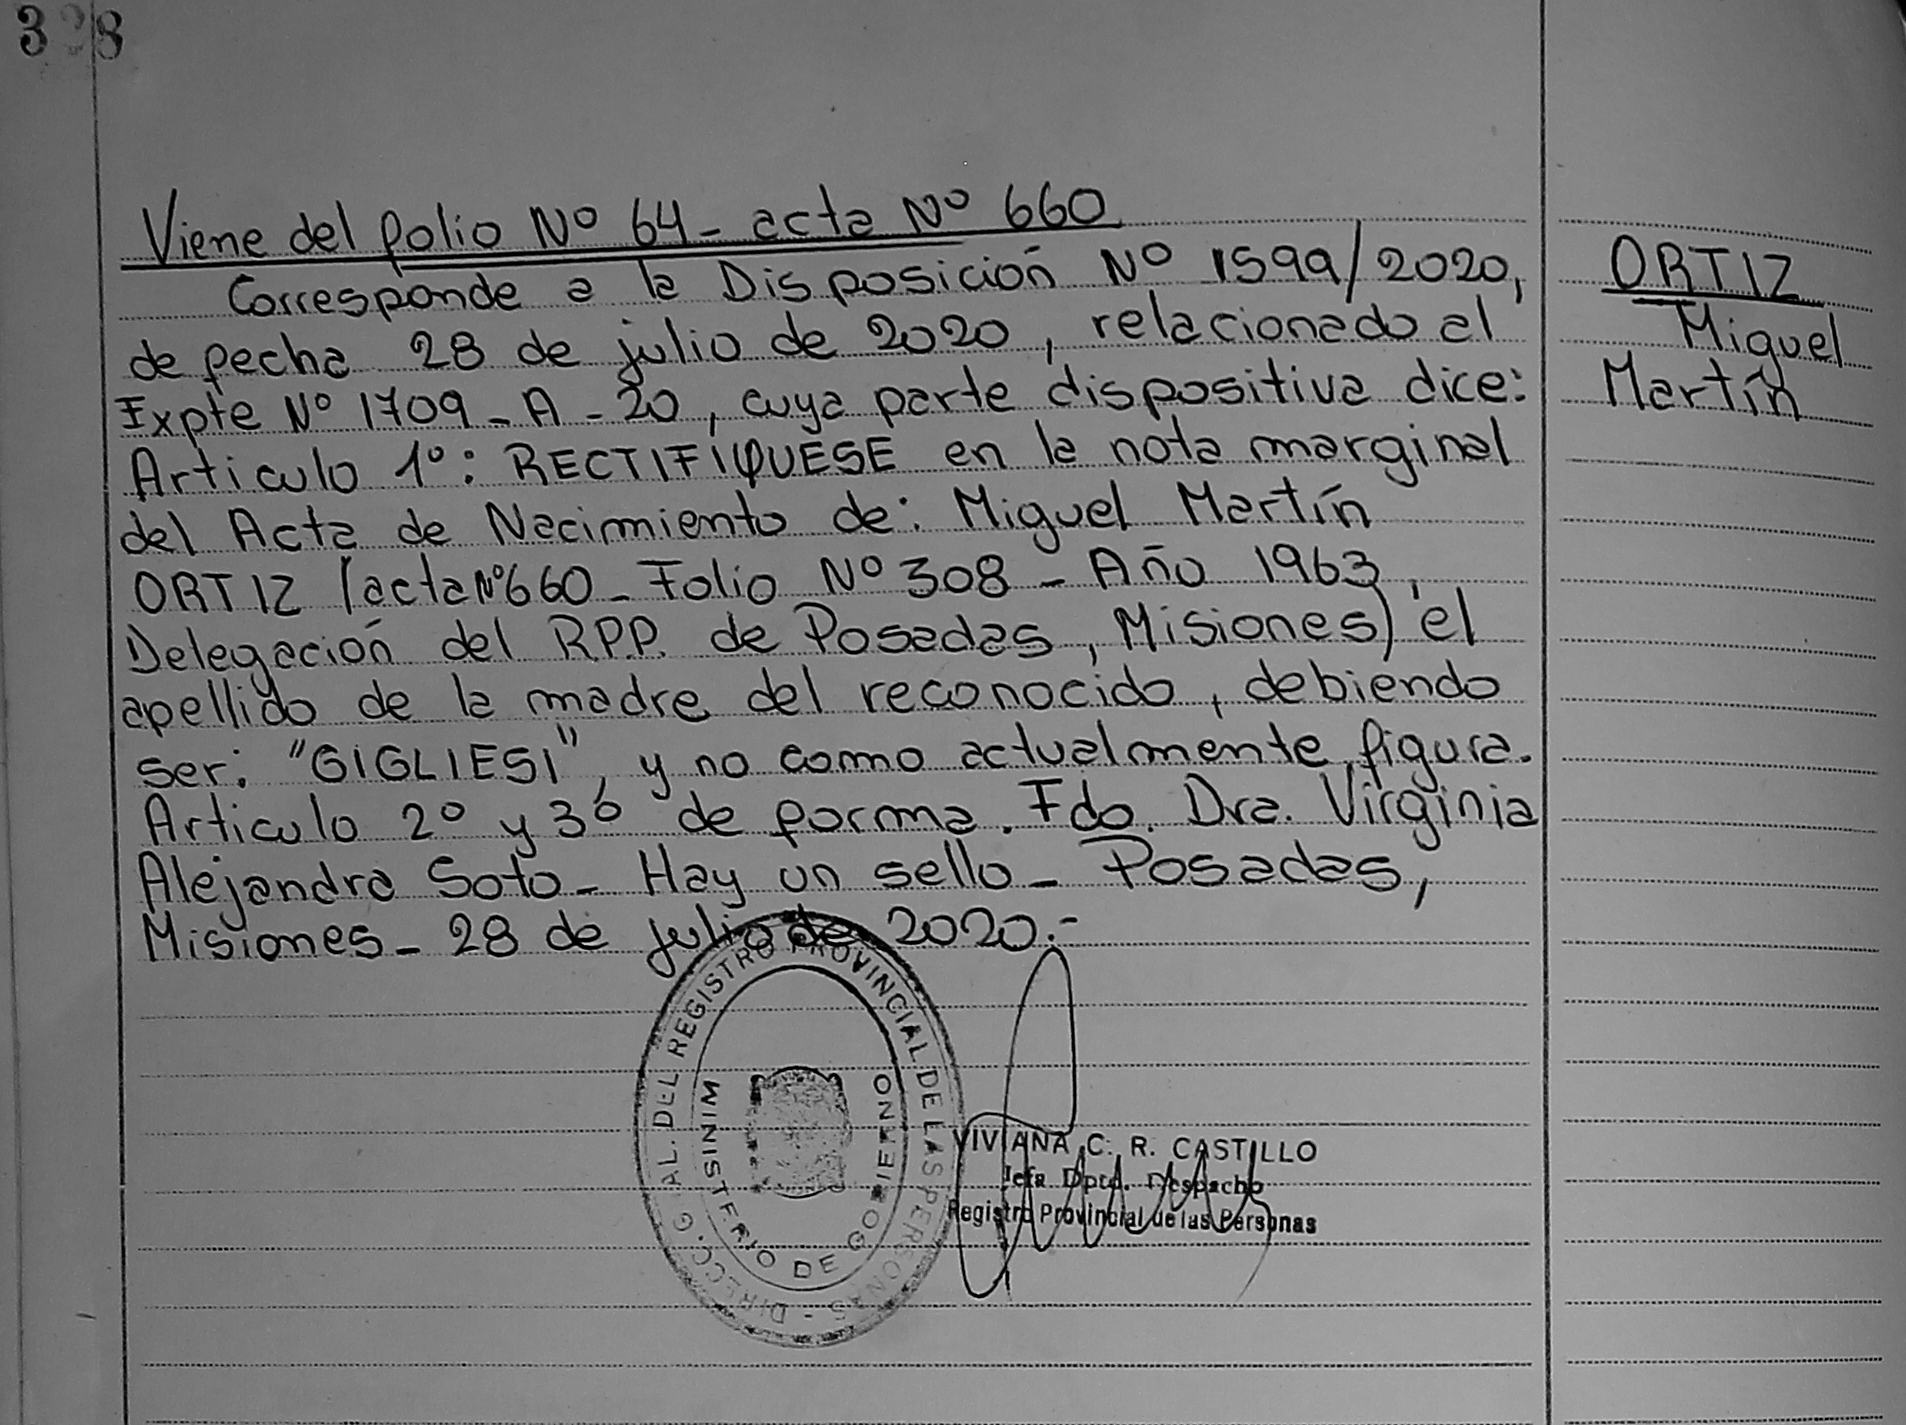 Viene del folio Nº 64 - acta Nº 660
Corresponde a la Disposición Nº 1599/2020,
de fecha 28 de julio de 2020, relacionado al
Expte Nº 1709 - A - 20, cuya parte dispositiva dice:
Articulo 1º: RECTIFÍQUESE en la nota marginal
del Acta de Nacimiento de: Miguel Martín
ORTIZ (acta Nº 660 - Folio Nº 308 - Año 1963,
Delegación del R.P.P. de Posadas, Misiones) el
apellido de la madre del reconocido, debiendo
ser: "GIGLIESI", y no como actualmente figura.
Articulo 2º y 3º de forma. Fdo. Dra. Virginia
Alejandra Soto - Hay un sello - Posadas,
Misiones - 28 de julio de 2020.-
ORTIZ
Miguel
Martín
DIRECC. G R AL. DEL REGISTRO PROVINCIAL DE LAS PERSONAS -
MINISTERIO DE GOBIERNO
VIVIANA C. R. CASTILLO
Jefa Dpto. Despacho
Registro Provincial de las Personas